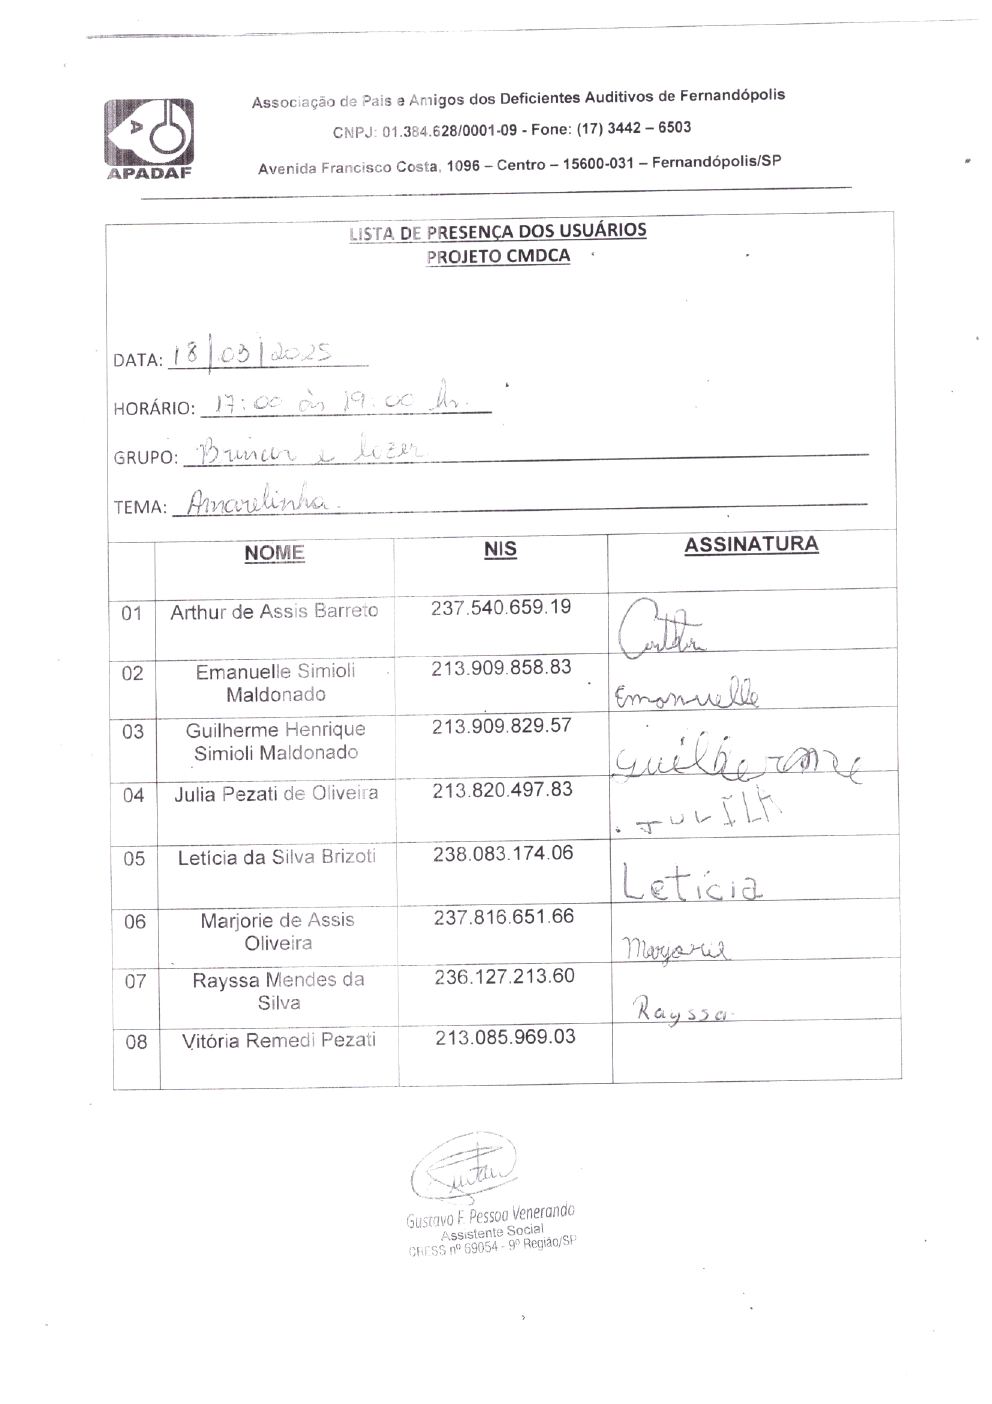 Associação de Pais e Amigos dos Deficientes Auditivos de Fernandópolis
CNPJ: 01.384.628/0001-09 - Fone: (17) 3442 – 6503
Avenida Francisco Costa, 1096 – Centro – 15600-031 – Fernandópolis/SP
A
APADAF
LISTA DE PRESENÇA DOS USUÁRIOS
PROJETO CMDCA
DATA: 18/03/2025
HORÁRIO: 17:00 às 19:00 hr.
GRUPO: Brincar e lazer
TEMA: Amarelinha.
NOME NIS ASSINATURA
01 Arthur de Assis Barreto 237.540.659.19
02 Emanuelle Simioli Maldonado 213.909.858.83 Emanuelle
03 Guilherme Henrique Simioli Maldonado 213.909.829.57 Guilherme
04 Julia Pezati de Oliveira 213.820.497.83
05 Letícia da Silva Brizoti 238.083.174.06 Letícia
06 Marjorie de Assis Oliveira 237.816.651.66 Marjorie
07 Rayssa Mendes da Silva 236.127.213.60 Rayssa
08 Vitória Remedi Pezati 213.085.969.03
Gustavo F. Pessoa Venerando
Assistente Social
CRESS nº 69054 - 9º Região/SP